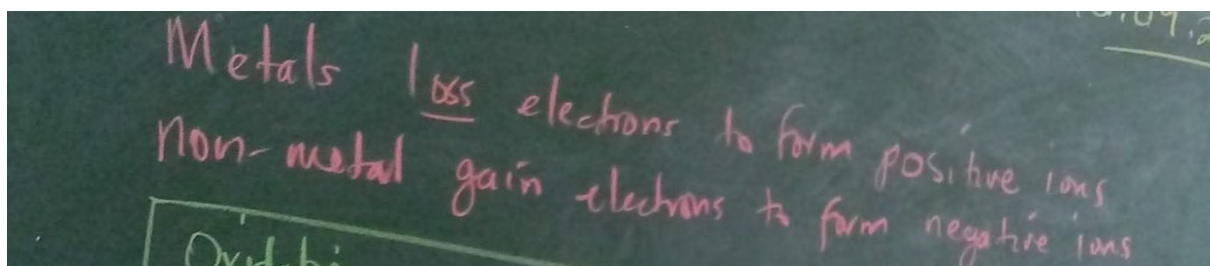 Metals loss electrons to form positive ions
Non-metal gain electrons to form negative ions